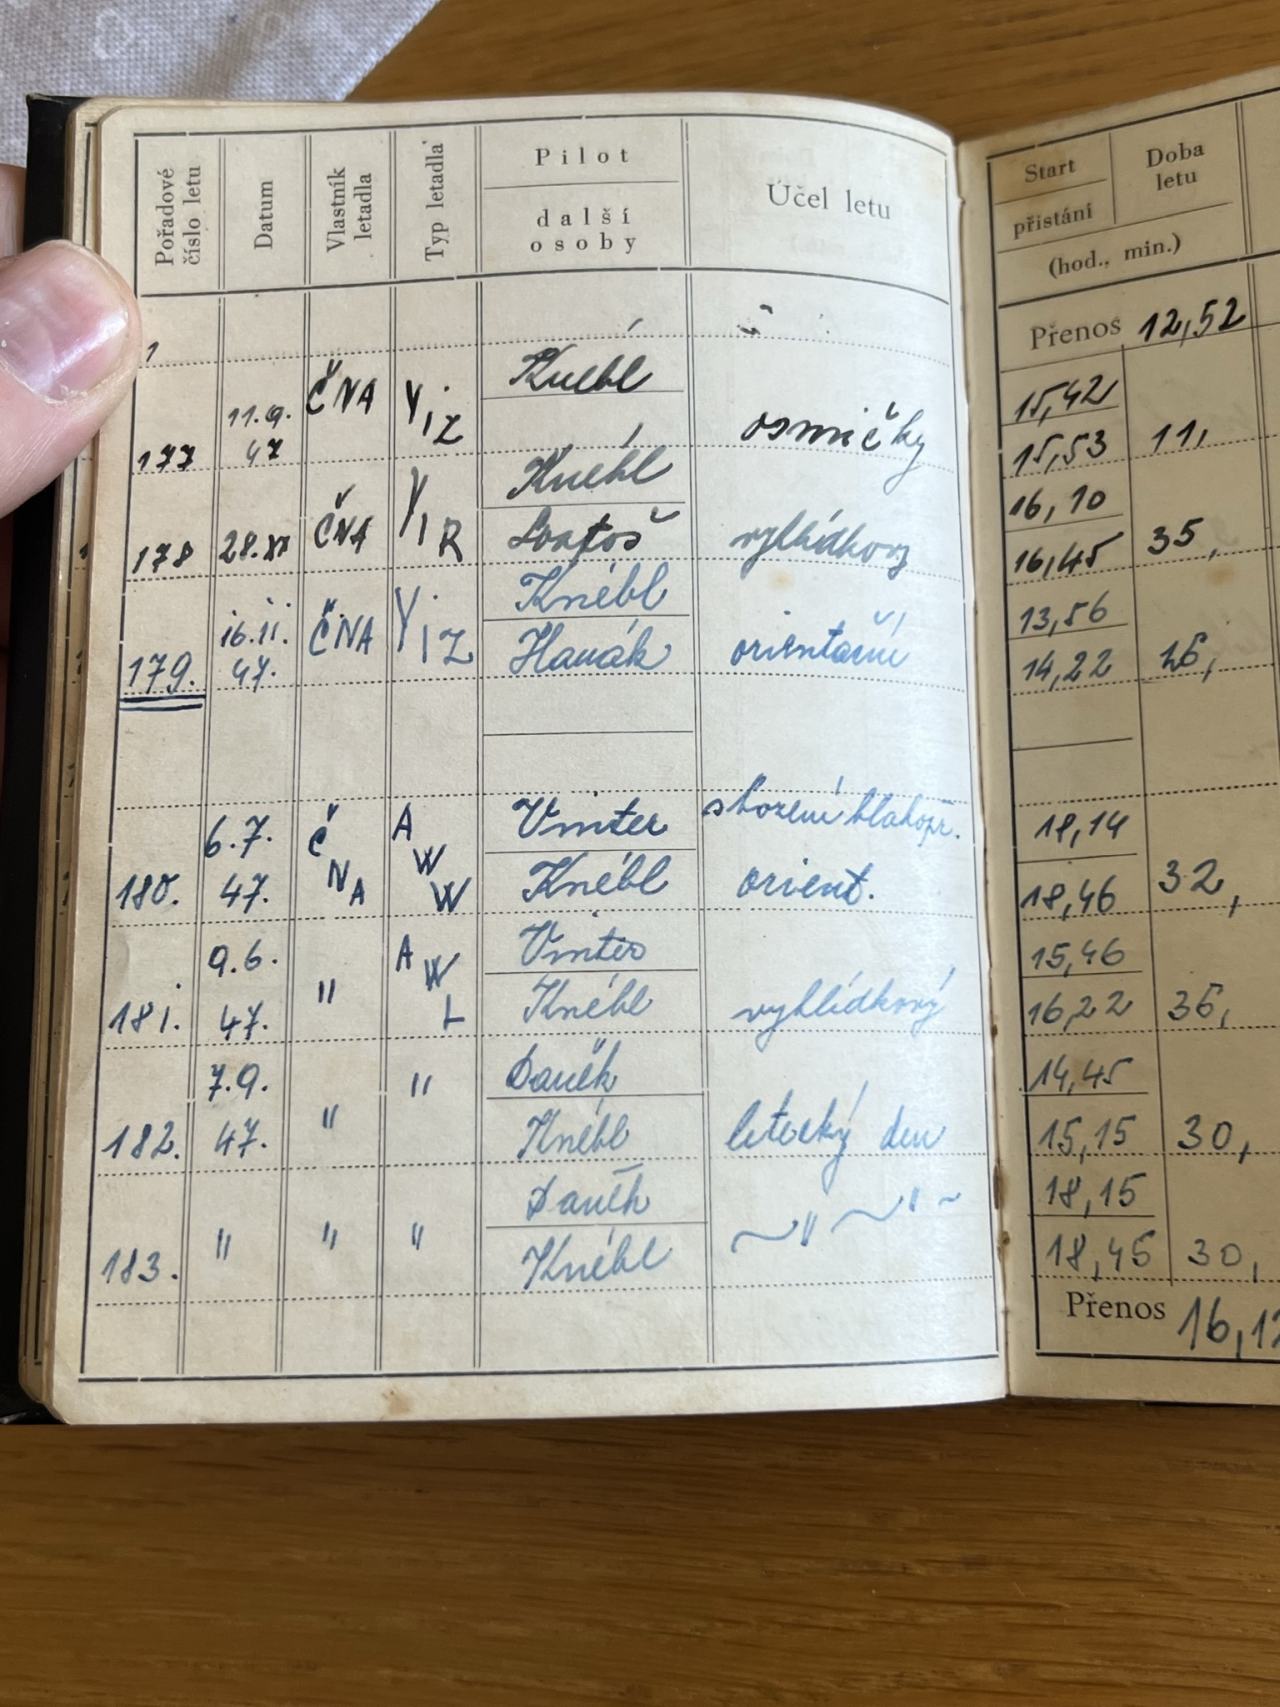 Pořadové číslo letu
Datum
Vlastník letadla
Typ letadla
Pilot
další osoby
Účel letu
Start
přistání
Doba letu
(hod., min.)
Přenos 12,52
177 11.9. 47 ČNA Knébl osmičky 15,42 15,53 11,
178 ČNA Knébl vyhlídkový 16,10 16,45 35,
179. 16.11. 47. ČNA Knébl Hanák orientační 13,56 14,22 26,
180. 6.7. 47. ČNA AWW Vinter Knébl shození blahopř. orient. 18,14 18,46 32,
181. 9.6. 47. " AWL Vinter Knébl vyhlídkový 15,46 16,22 36,
182. 7.9. 47. " " Daněk Knébl letecký den 14,45 15,15 30,
183. " " " Daněk Knébl " " 18,15 18,45 30,
Přenos 16,12